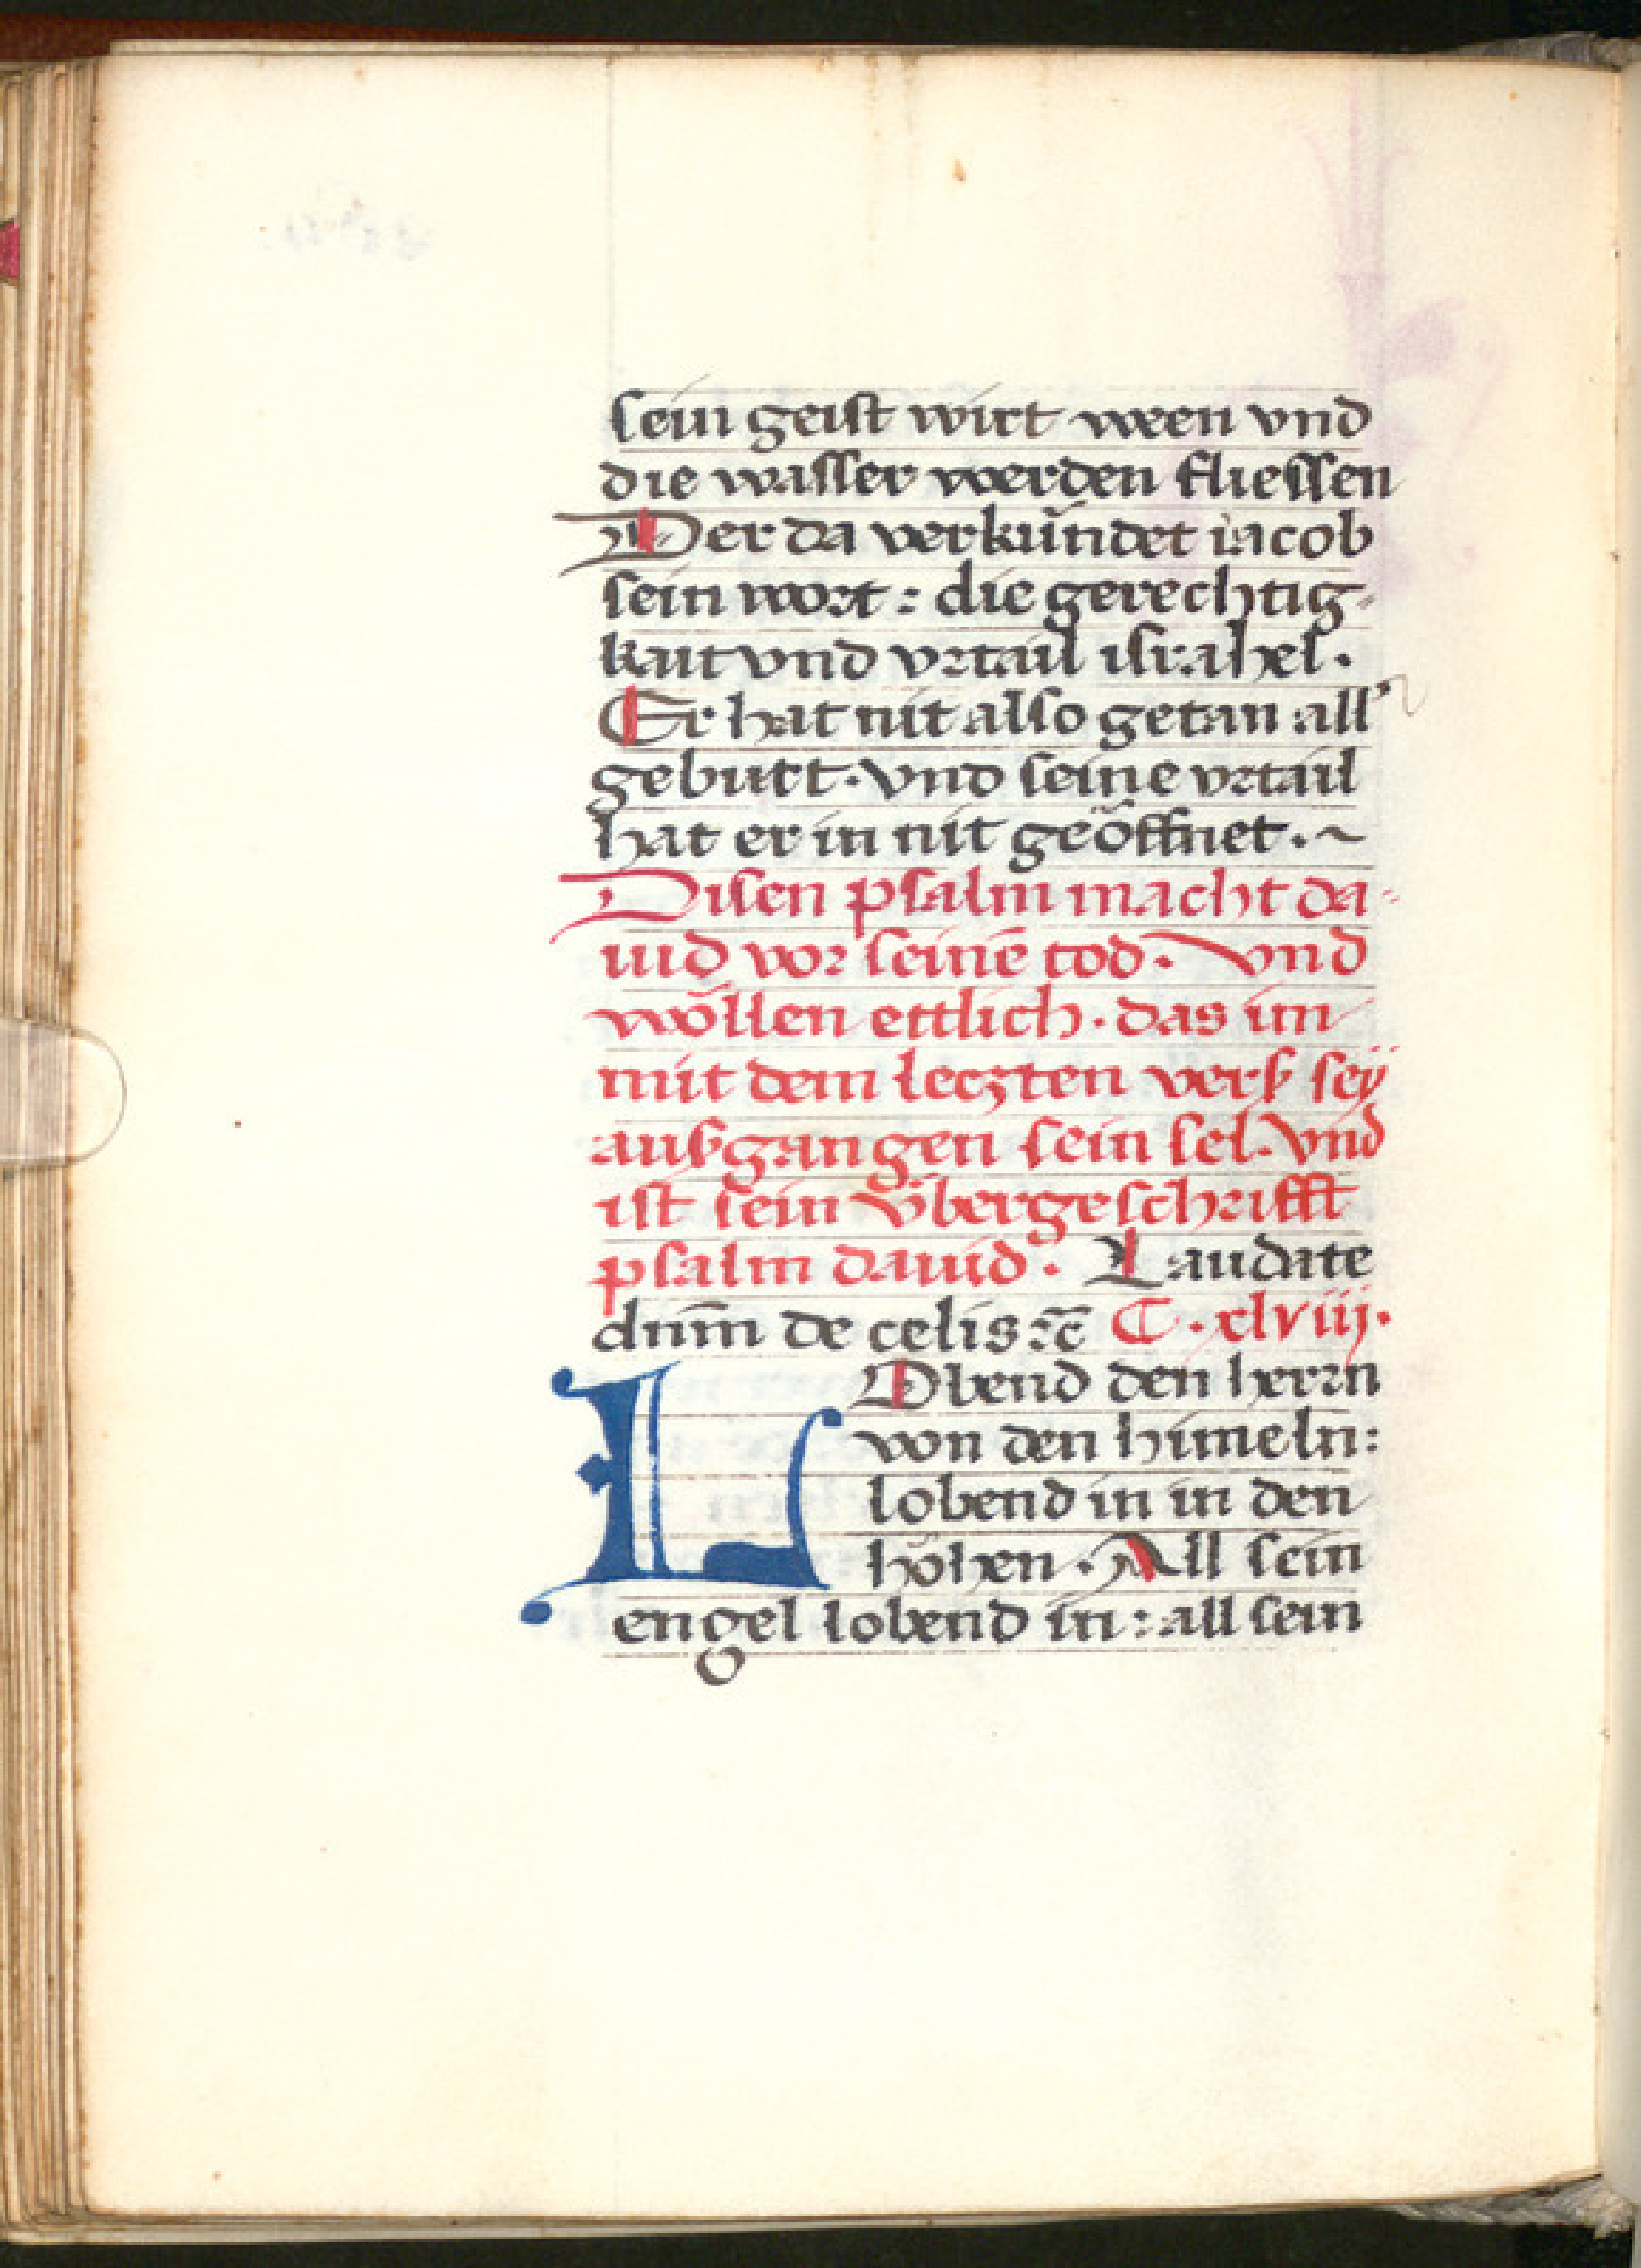 sein geist wirt ween vnd
die wasser werden fliessen
Der da verkűndet iacob
sein wort : die gerechtig-
kait vnd vrtail israhel .
Er hat nit also getan all’
geburt . vnd seine vrtail
hat er in nit geőffnet . ~
Disen psalm macht da-
uid vor seinē tod . vnd
wőllen ettlich . das im
mit dem leczten verß seÿ
außgangen sein sel . vnd
ist sein v̋bergeschrifft
psalm dauid . Laudate
dnm̄ de celis ⁊c̄ C . xlviij .
LObend den herrn
von den himeln :
lobend in in den
hőhen . All sein
engel lobend in : all sein